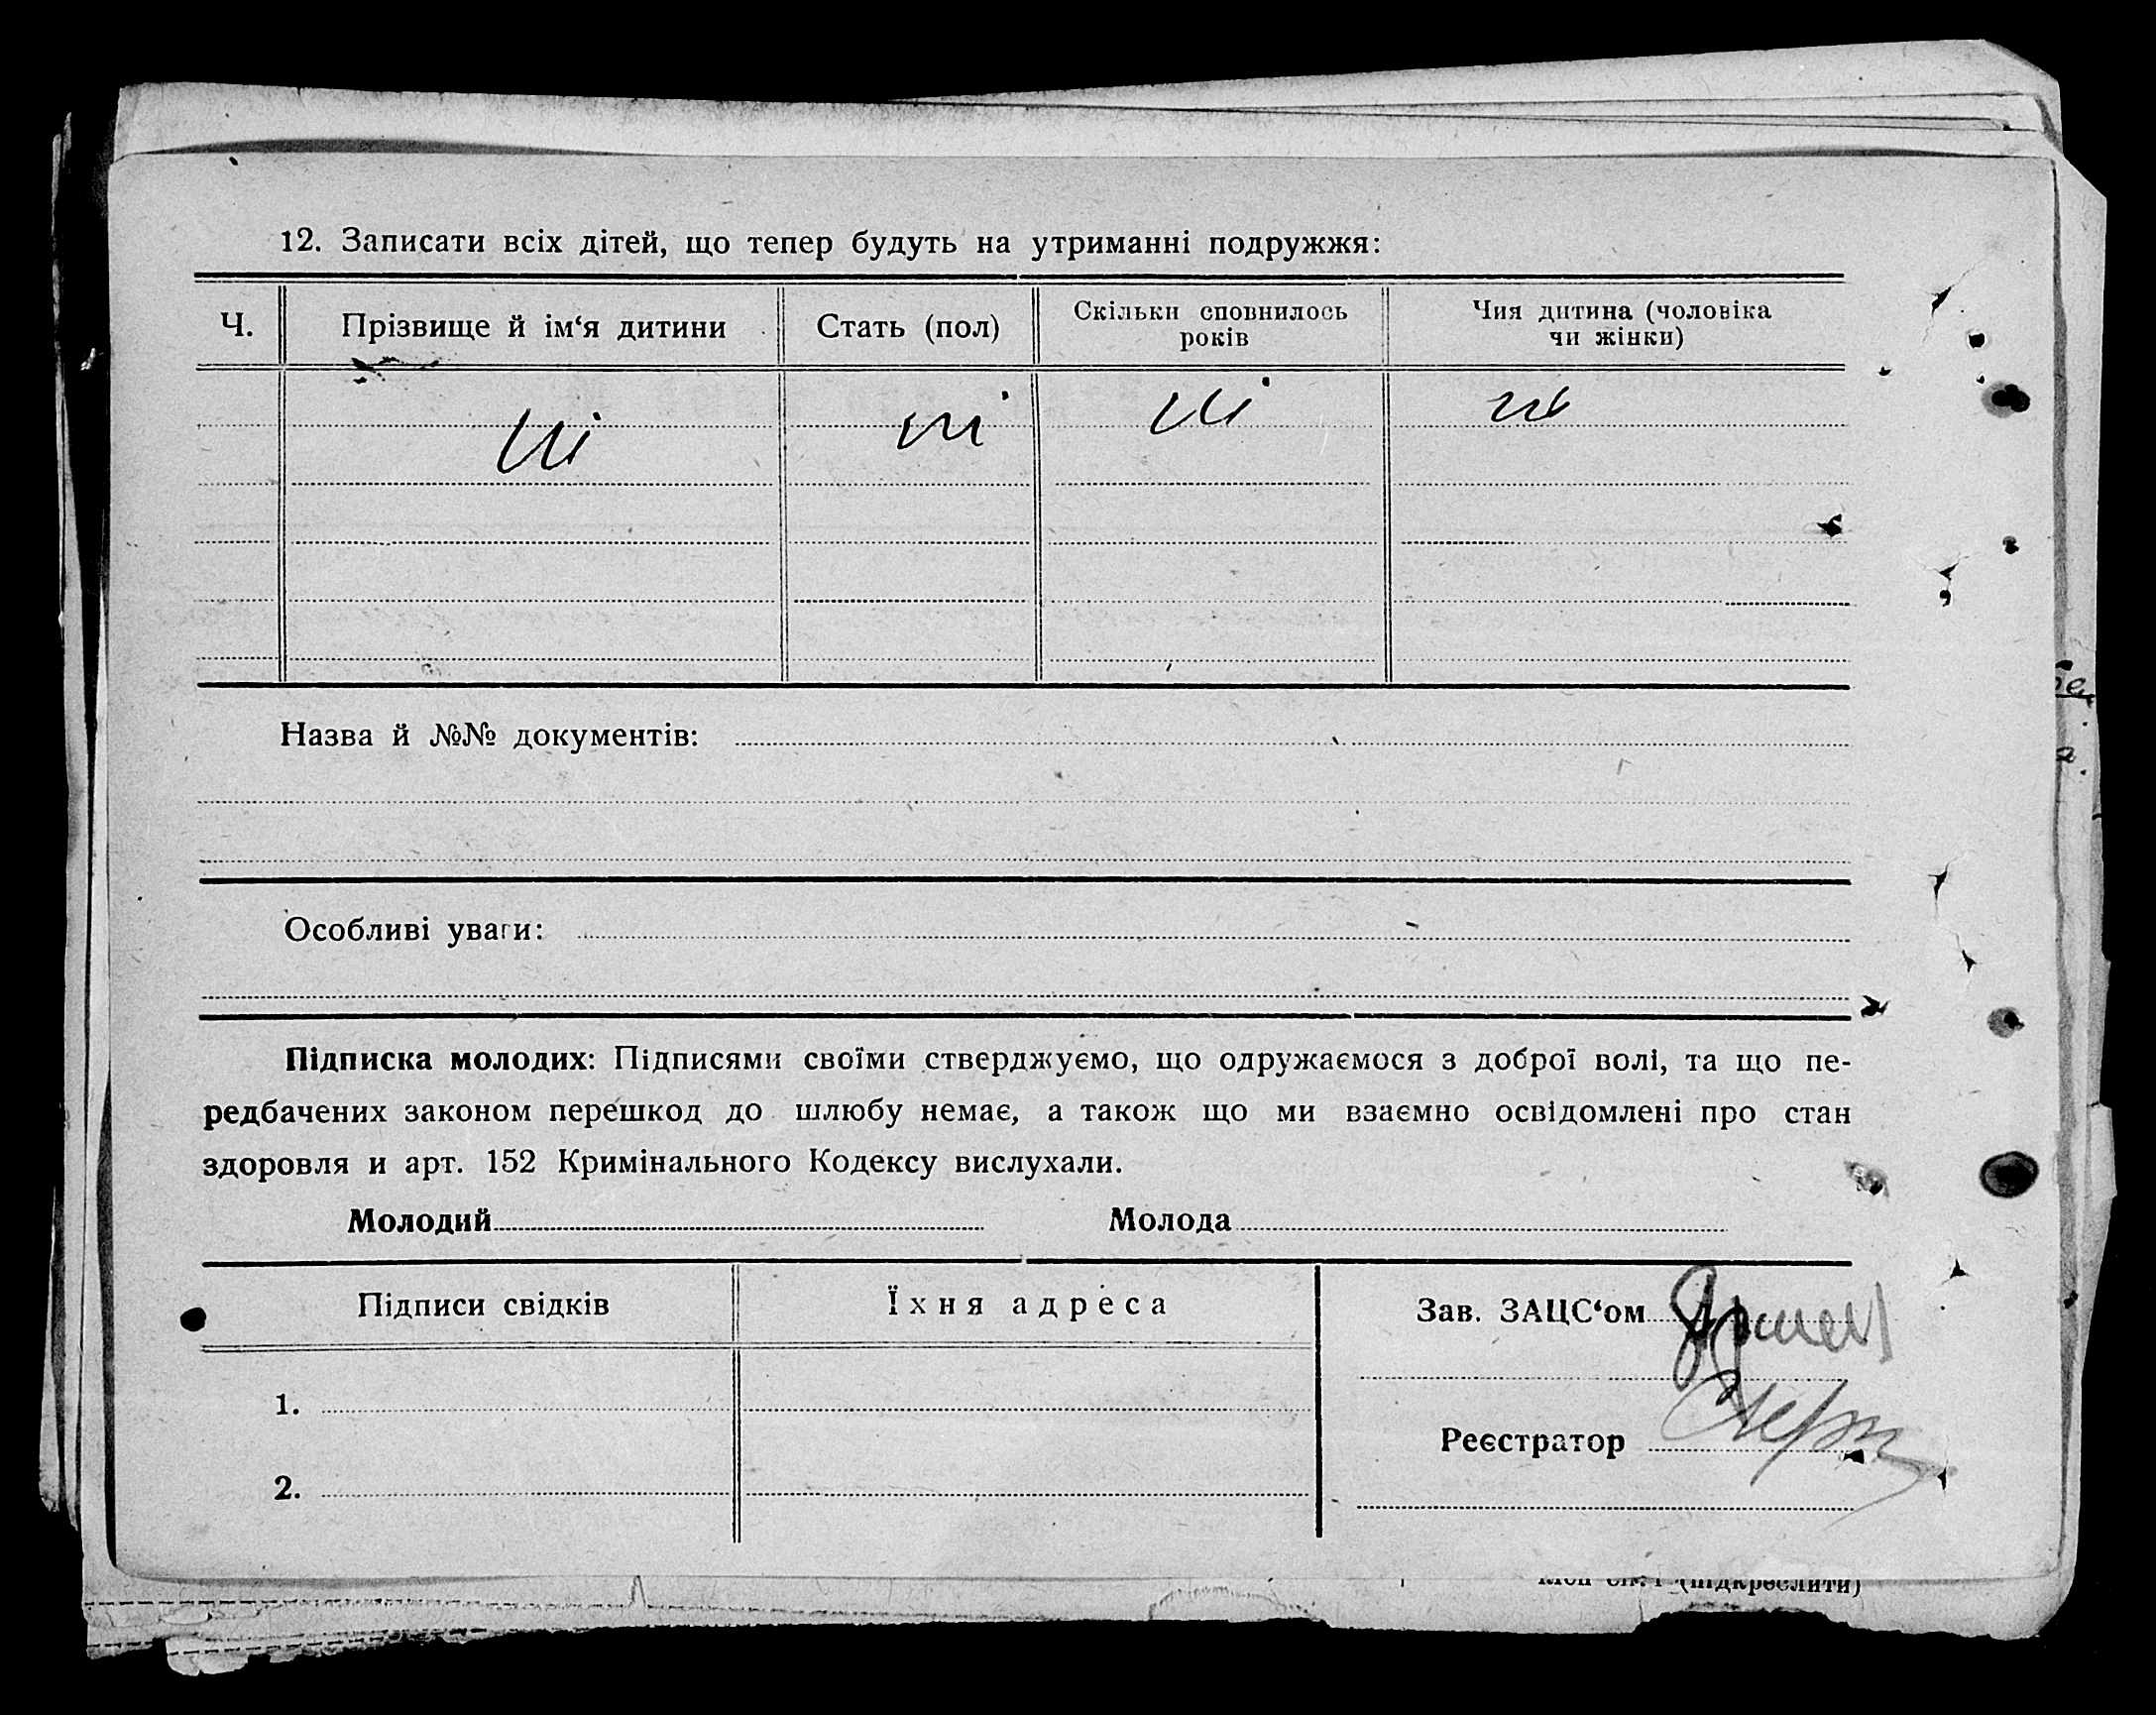 12. Записати всіх дітей, що тепер будуть на утриманні подружжя:
Ч. Прізвище й ім‘я дитини Стать (пол) Скільки сповнилось років Чия дитина (чоловіка чи жінки)
ні ні ні ні
Назва й №№ документів:
Особливі уваги:
Підписка молодих: Підписями своїми стверджуємо, що одружаємося з доброї волі, та що пе-
редбачених законом перешкод до шлюбу немає, а також що ми взаємно освідомлені про стан
здоровля и арт. 152 Кримінального Кодексу вислухали.
Молодий Молода
Підписи свідків Їхня адреса Зав. ЗАЦС‘ом
1.
Реєстратор
2.
(підкреслити)